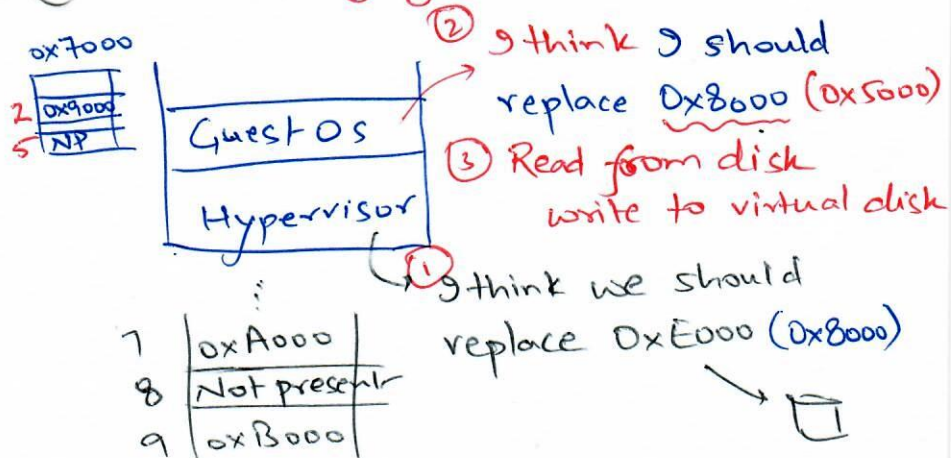 0x7000
2 0x9000
5 NP
Guest OS
Hypervisor
② I think I should
replace 0x8000 (0x5000)
③ Read from disk
write to virtual disk
① I think we should
replace 0xE000 (0x8000)
7 0xA000
8 Not present
9 0xB000